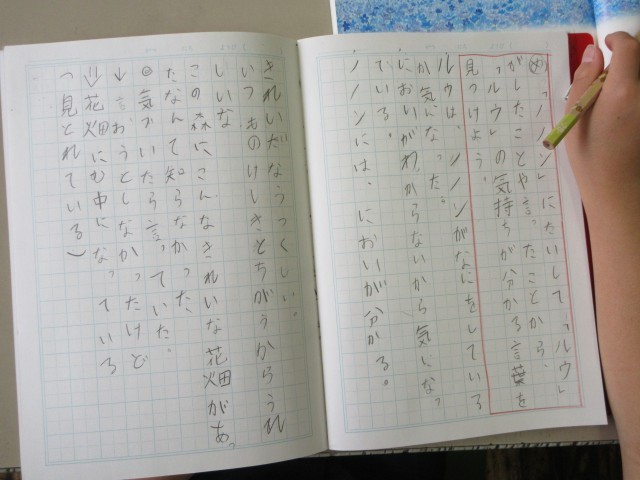 め「ノノン」にたいして「ルウ」
がしたことや言ったことから、
「ルウ」の気持ちが分かる言葉を
見つけよう。
ルウは、ノノンがなにをしている
か気になった。
においがわからないから気にな
ている。
ノノンには、においが分かる。
きれいだなうつくしい。
いつものけしきとちがうからうれ
しいな
この森にこんなきれいな花畑があ
たなんて知らなかった、
◎気がついたら言っていた。
↓言おうとしなかったけど
⇓花畑にむ中になっている
(見とれている)